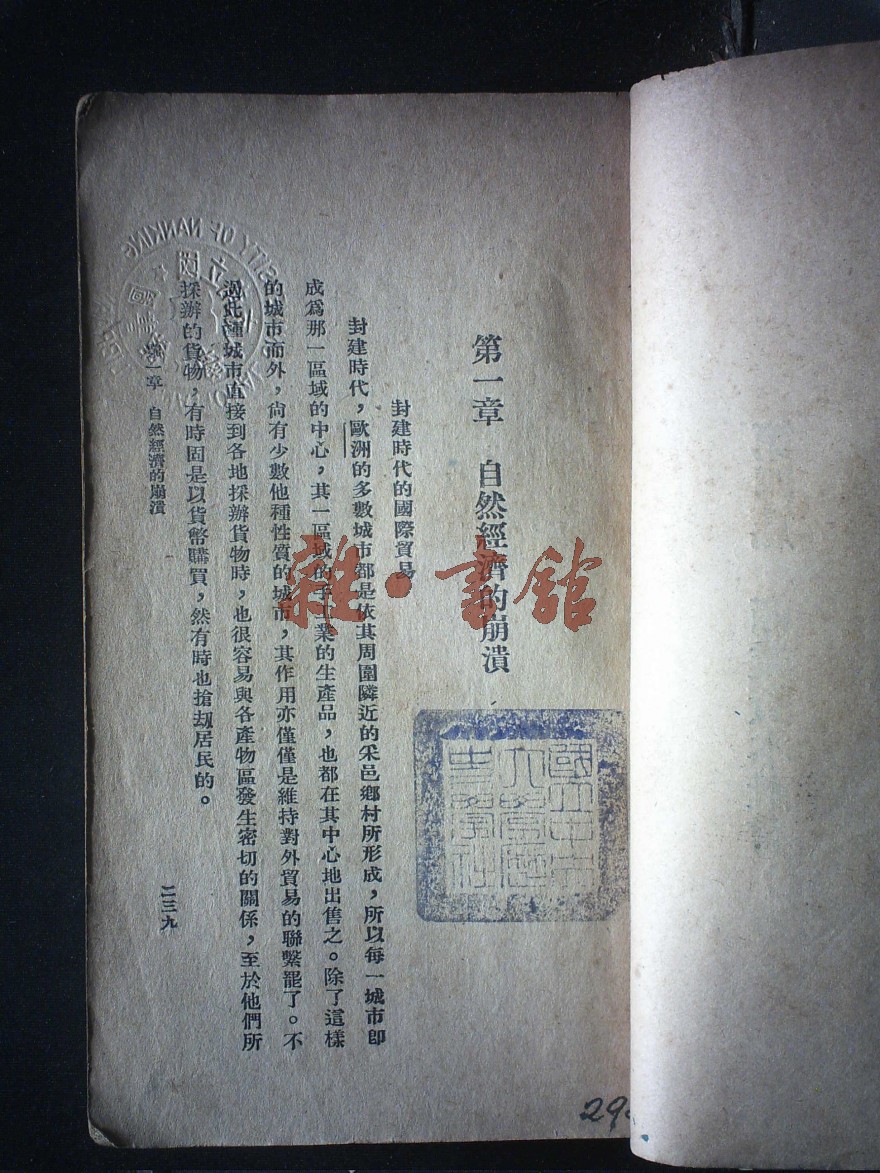 第一章　自然經濟的崩潰
封建時代的國際貿易
封建時代，歐洲的多數城市都是依其周圍隣近的采邑鄉村所形成，所以每一城市卽
成爲那一區域的中心，其一區域的手工業的生產品，也都在其中心地出售之。除了這樣
的城市而外，尙有少數他種性質的城市，其作用亦僅僅是維持對外貿易的聯繫罷了。不
過此種城市直接到各地採辦貨物時，也很容易與各產物區發生密切的關係，至於他們所
採辦的貨物，有時固是以貨幣購買，然有時也搶刼居民的。
第一章　自然經濟的崩潰
二三九
雜·書館
國立中央
大學歷
史學社
SITY OF NANKING
29